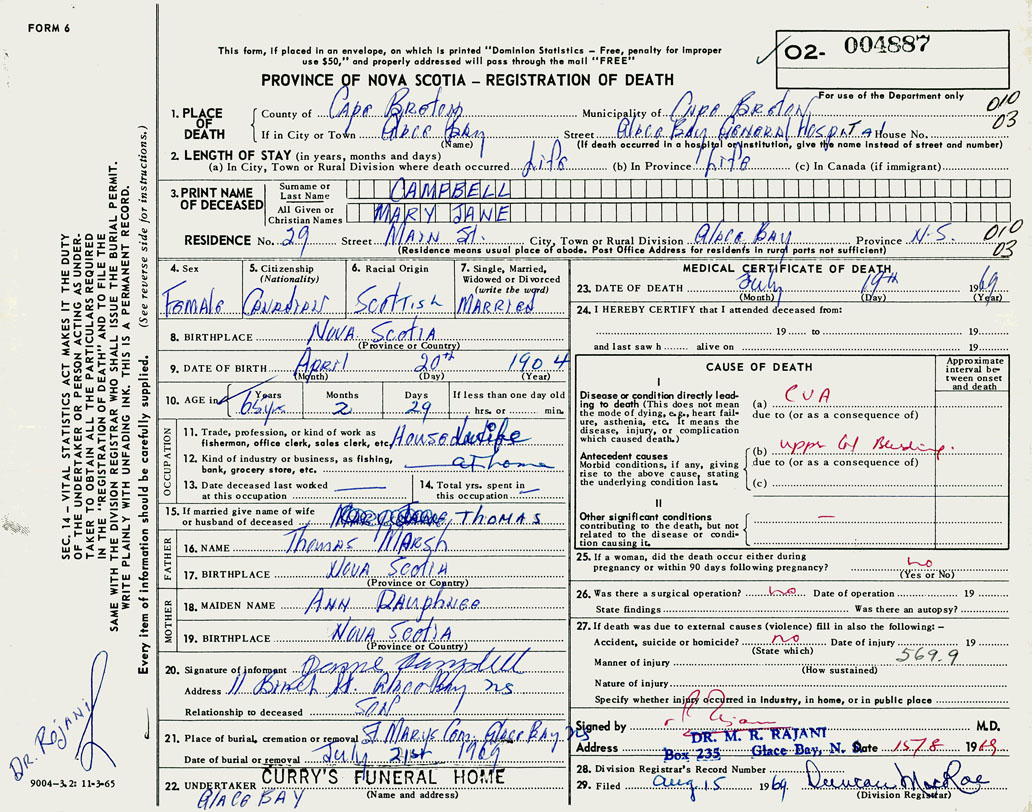 FORM 6
This form, if placed in an envelope, on which is printed "Dominion Statistics – Free, penalty for improper
use $50," and properly addressed will pass through the mail "FREE"
O2- 004887
PROVINCE OF NOVA SCOTIA – REGISTRATION OF DEATH
For use of the Department only
1. PLACE OF DEATH
County of Cape Breton Municipality of Cape Breton 010
If in City or Town Glace Bay Street Glace Bay General Hospital House No. 03
(Name) (If death occurred in a hospital or institution, give the name instead of street and number)
2. LENGTH OF STAY (in years, months and days)
(a) In City, Town or Rural Division where death occurred Life (b) In Province Life (c) In Canada (if immigrant)
3. PRINT NAME OF DECEASED
Surname or Last Name CAMPBELL
All Given or Christian Names MARY JANE
RESIDENCE No. 29 Street Main St. City, Town or Rural Division Glace Bay Province N.S. 010
(Residence means usual place of abode. Post Office Address for residents in rural parts not sufficient) 03
4. Sex Female
5. Citizenship (Nationality) Canadian
6. Racial Origin Scottish
7. Single, Married, Widowed or Divorced (write the word) Married
8. BIRTHPLACE Nova Scotia
(Province or Country)
9. DATE OF BIRTH April 20th 1904
(Month) (Day) (Year)
10. AGE in Years 65 yrs Months 2 Days 29 If less than one day old hrs. or min.
OCCUPATION
11. Trade, profession, or kind of work as fisherman, office clerk, sales clerk, etc. Housewife
12. Kind of industry or business, as fishing, bank, grocery store, etc. at home
13. Date deceased last worked at this occupation
14. Total yrs. spent in this occupation
15. If married give name of wife or husband of deceased THOMAS
FATHER
16. NAME Thomas Marsh
17. BIRTHPLACE Nova Scotia
(Province or Country)
MOTHER
18. MAIDEN NAME Ann Dauphnee
19. BIRTHPLACE Nova Scotia
(Province or Country)
20. Signature of informent
Address 11 Birch St. Glace Bay NS
Relationship to deceased SON
21. Place of burial, cremation or removal St Marys Cem. Glace Bay NS
Date of burial or removal July 21st 1969
CURRY'S FUNERAL HOME
22. UNDERTAKER GLACE BAY
(Name and address)
MEDICAL CERTIFICATE OF DEATH
23. DATE OF DEATH July 19th 1969
(Month) (Day) (Year)
24. I HEREBY CERTIFY that I attended deceased from:
19 to 19
and last saw h alive on 19
CAUSE OF DEATH
Approximate interval between onset and death
I
Disease or condition directly leading to death (This does not mean the mode of dying, e.g., heart failure, asthenia, etc. It means the disease, injury, or complication which caused death.)
(a) CVA
due to (or as a consequence of)
Antecedent causes
Morbid conditions, if any, giving rise to the above cause, stating the underlying condition last.
(b) upper GI Bleeding.
due to (or as a consequence of)
(c)
II
Other significant conditions contributing to the death, but not related to the disease or condition causing it.
–
25. If a woman, did the death occur either during pregnancy or within 90 days following pregnancy? no
(Yes or No)
26. Was there a surgical operation? no Date of operation 19
State findings Was there an autopsy?
27. If death was due to external causes (violence) fill in also the following:–
Accident, suicide or homicide? no Date of injury 19
(State which)
Manner of injury 569.9
(How sustained)
Nature of injury
Specify whether injury occurred in industry, in home, or in public place
Signed by R Rajani M.D.
DR. M. R. RAJANI
Address Box 235 Glace Bay, N. S. Date 15.7.8 1969
28. Division Registrar's Record Number
29. Filed Aug 15 1969 Duncan MacRae
(Division Registrar)
SEC. 14 – VITAL STATISTICS ACT MAKES IT THE DUTY
OF THE UNDERTAKER OR PERSON ACTING AS UNDER-
TAKER TO OBTAIN ALL THE PARTICULARS REQUIRED
IN THE "REGISTRATION OF DEATH" AND TO FILE THE
SAME WITH THE DIVISION REGISTRAR WHO SHALL ISSUE THE BURIAL PERMIT.
WRITE PLAINLY WITH UNFADING INK. THIS IS A PERMANENT RECORD.
Every item of information should be carefully supplied. (See reverse side for instructions.)
DR. Rajani
9004–3.2: 11-3-65